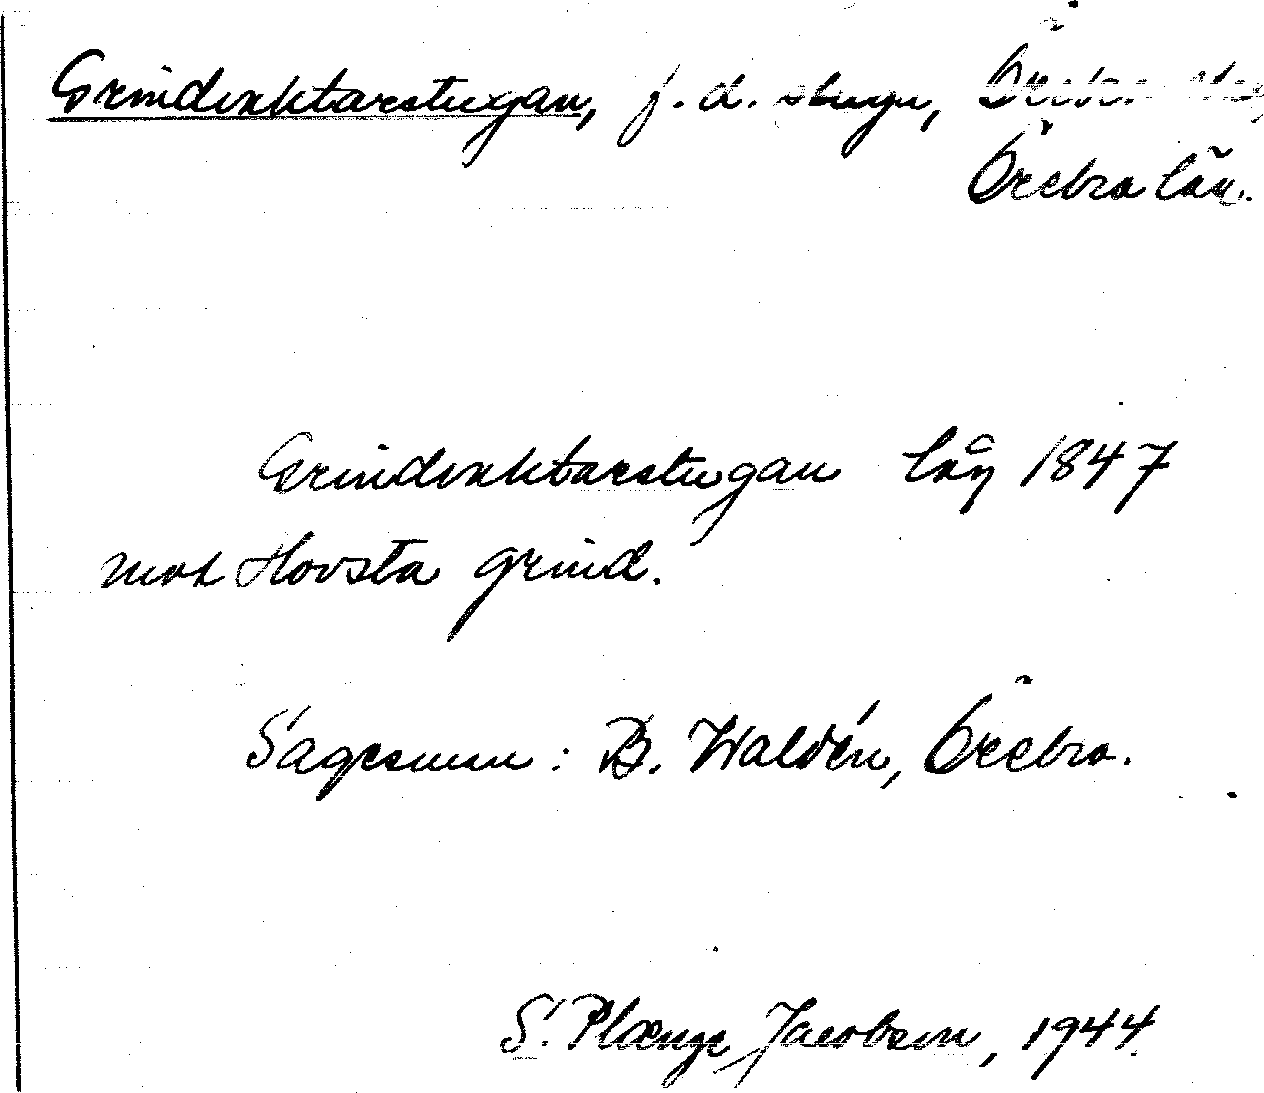 Grindvaktarstugan, f. d. stuga, Örebro
Örebro län.
Grindvaktarstugan låg 1847
mot Hovsta grind.
Sagesman: B. Waldén, Örebro.
S. Plænge Jacobson, 1944.